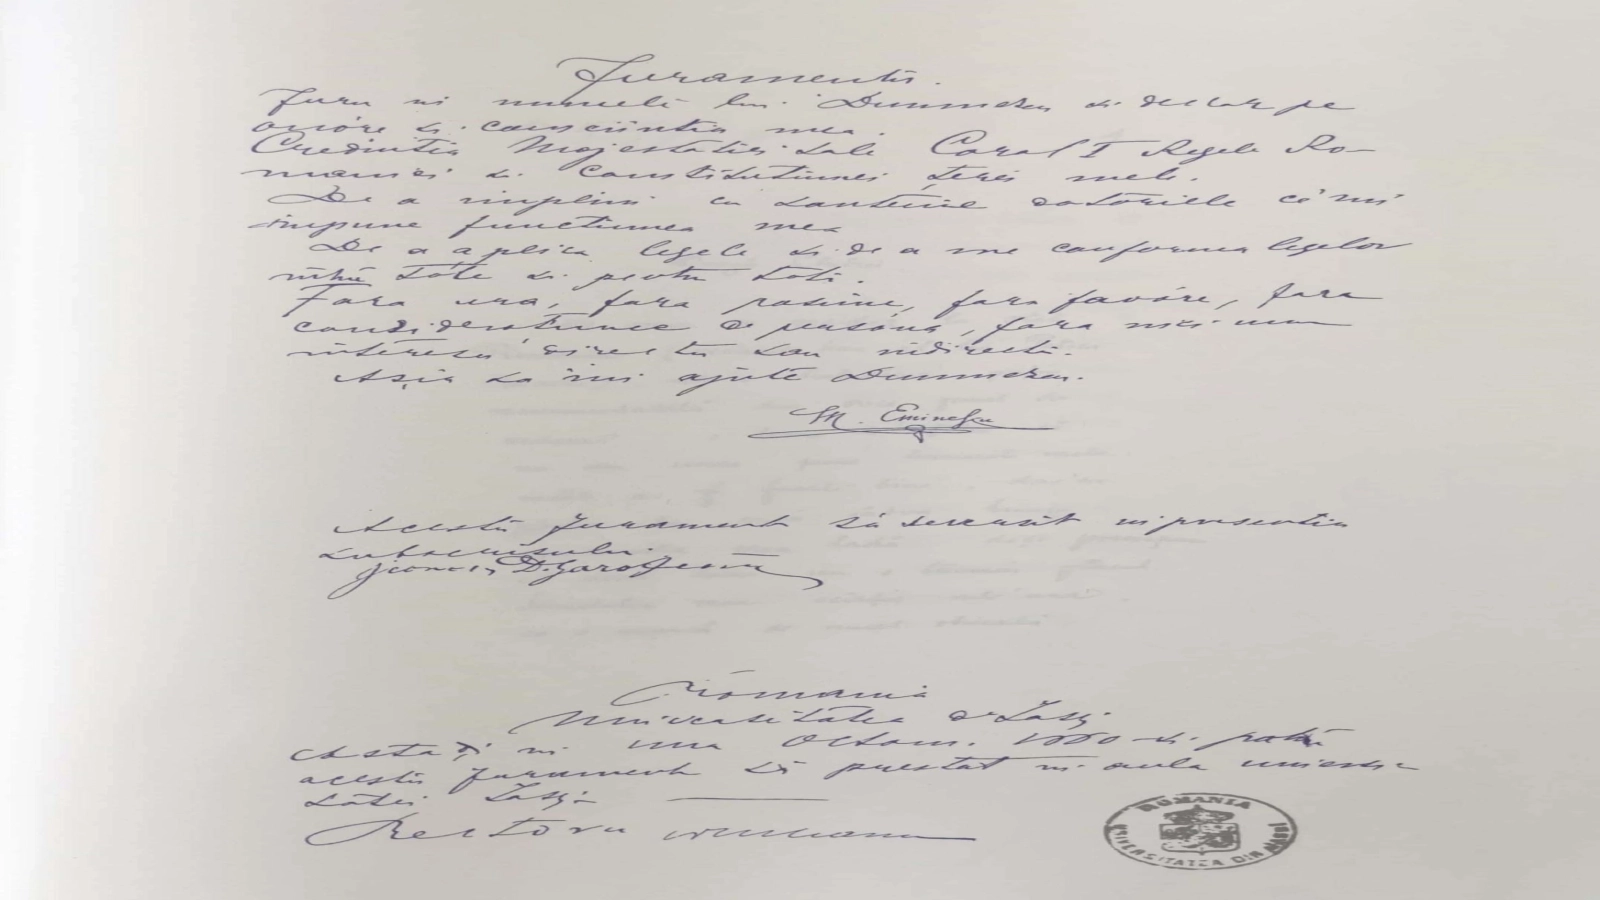 Juramentu.
Juru in numele lui Dumnezeu si declar pe
onóre si consciintia mea.
Credintia Majestatiei Sale Carol I Regele Ro-
maniei si Constitutiunei țerei mele.
De a implini cu santenie datoriele ce'mi
impune functiunea mea
De a aplica legele si de a me conforma legelor
intru tóte si pentru toti.
Fara ura, fara pasiune, fara favóre, fara
consideratiune de persóna, fara nici unu
interesu directu sau indirectu.
Așia sa 'mi ajute Dumnezeu.
M. Eminescu
Acestu Juramentu s'a severșit in presentia
subscrisului.
România
Universitatea d. Iassi
Astadi in una Octom. si
acestu Juramentu s'a prestat in aula universi-
tătei Iassi
Rectoru
ROMANIA
UNIVERSITATEA DIN IASSI